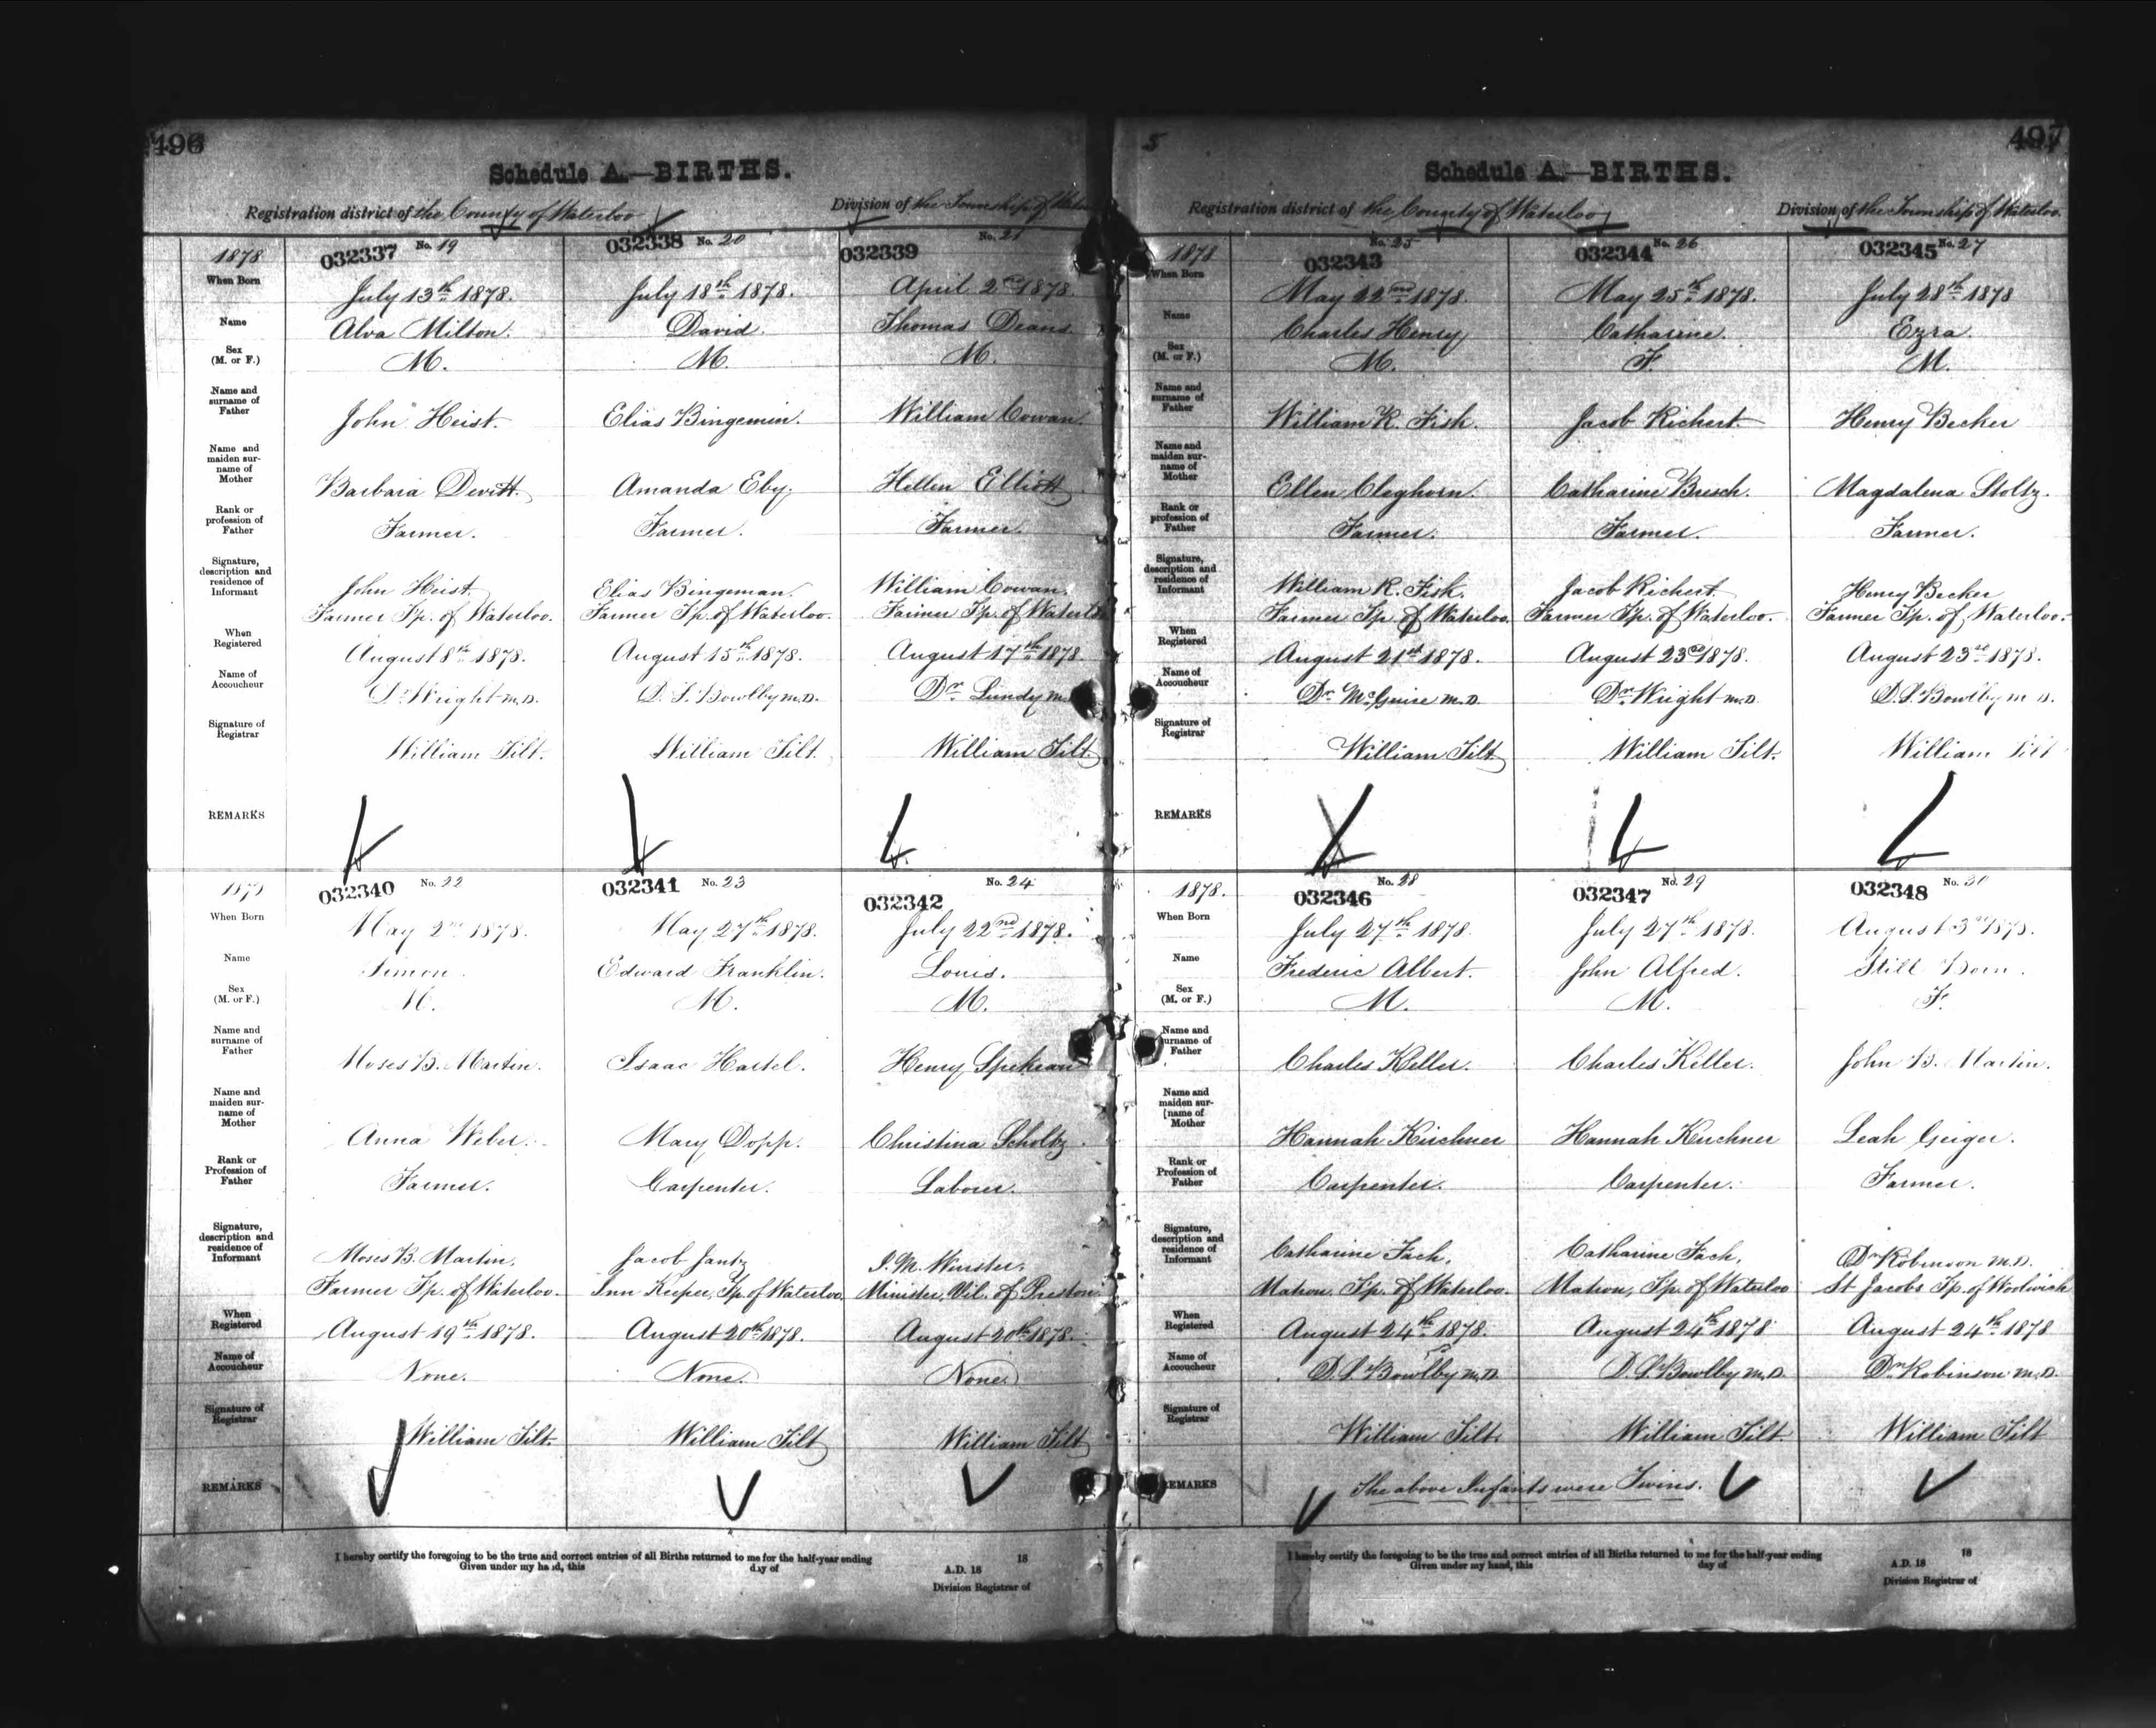 496
Schedule A.—BIRTHS.
Registration district of the County of Waterloo
Division of the Township of
1878
032337 No. 19
032338 No. 20
032339 No. 21
When Born
July 13th 1878.
July 18th 1878.
April 2nd 1878.
Name
Alva Milton.
David.
Thomas Deans.
Sex
(M. or F.)
M.
M.
M.
Name and
surname of
Father
John Heist.
Elias Bingemin.
William Cowan.
Name and
maiden sur-
name of
Mother
Barbara Devitt.
Amanda Eby.
Hellen Elliott
Rank or
profession of
Father
Farmer.
Farmer.
Farmer.
Signature,
description and
residence of
Informant
John Heist.
Farmer Tp. of Waterloo.
Elias Bingeman.
Farmer Tp. of Waterloo.
William Cowan.
Farmer Tp. of
When
Registered
August 8th 1878.
August 15th 1878.
August 17th 1878.
Name of
Accoucheur
Dr Wright M.D.
D. S. Bowlby M.D.
Dr. Lundy
Signature of
Registrar
William Tilt.
William Tilt.
William Tilt
REMARKS
1878
032340 No. 22
032341 No. 23
032342 No. 24
When Born
May 2nd 1878.
May 27th 1878.
July 22nd 1878.
Name
Simon.
Edward Franklin.
Louis.
Sex
(M. or F.)
M.
M.
M.
Name and
surname of
Father
Moses B. Martin.
Isaac Hartel.
Henry
Name and
maiden sur-
name of
Mother
Anna Weber.
Mary Dopp.
Christina Scholtz.
Rank or
Profession of
Father
Farmer.
Carpenter.
Laborer.
Signature,
description and
residence of
Informant
Moses B. Martin,
Farmer Tp. of Waterloo.
Jacob Jantz
Inn Keeper, Tp. of Waterloo.
Minister, Vil. of Preston.
When
Registered
August 19th 1878.
August 20th 1878.
August 20th 1878.
Name of
Accoucheur
None.
None.
None.
Signature of
Registrar
William Tilt.
William Tilt
William Tilt
REMARKS
I hereby certify the foregoing to be the true and correct entries of all Births returned to me for the half-year ending 18
Given under my hand, this day of A.D. 18
Division Registrar of
5
497
Schedule A.—BIRTHS.
Registration district of the County of Waterloo
Division of the Township of Waterloo.
1878
032343 No. 25
032344 No. 26
032345 No. 27
When Born
May 22nd 1878.
May 25th 1878.
July 28th 1878
Name
Charles Henry
Catharine.
Ezra.
Sex
(M. or F.)
M.
F.
M.
Name and
surname of
Father
William R. Fisk.
Jacob Richert.
Henry Becker
Name and
maiden sur-
name of
Mother
Ellen Cleghorn.
Catharine Bresch.
Magdalena Stoltz.
Rank or
profession of
Father
Farmer.
Farmer.
Farmer.
Signature,
description and
residence of
Informant
William R. Fisk.
Farmer Tp. of Waterloo.
Jacob Richert.
Farmer Tp. of Waterloo.
Henry Becker
Farmer Tp. of Waterloo.
When
Registered
August 21st 1878.
August 23rd 1878.
August 23rd 1878.
Name of
Accoucheur
Dr. McGuire M.D.
Dr. Wright M.D.
D. S. Bowlby M.D.
Signature of
Registrar
William Tilt
William Tilt.
William Tilt
REMARKS
1878.
032346 No. 28
032347 No. 29
032348 No. 30
When Born
July 27th 1878.
July 27th 1878.
August 3rd 1878.
Name
Frederic Albert.
John Alfred.
Still Born.
Sex
(M. or F.)
M.
M.
F.
Name and
surname of
Father
Charles Keller.
Charles Keller.
John B. Martin.
Name and
maiden sur-
name of
Mother
Hannah Kirchner
Hannah Kirchner
Leah Geiger.
Rank or
Profession of
Father
Carpenter.
Carpenter.
Farmer.
Signature,
description and
residence of
Informant
Catharine Fach,
Matron, Tp. of Waterloo.
Catharine Fach,
Matron, Tp. of Waterloo
Dr Robinson M.D.
St Jacobs Tp. of Woolwich
When
Registered
August 24th 1878.
August 24th 1878
August 24th 1878
Name of
Accoucheur
D. S. Bowlby M.D.
D. S. Bowlby M.D.
Dr Robinson M.D.
Signature of
Registrar
William Tilt.
William Tilt.
William Tilt
REMARKS
The above Infants were Twins.
I hereby certify the foregoing to be the true and correct entries of all Births returned to me for the half-year ending 18
Given under my hand, this day of A.D. 18
Division Registrar of